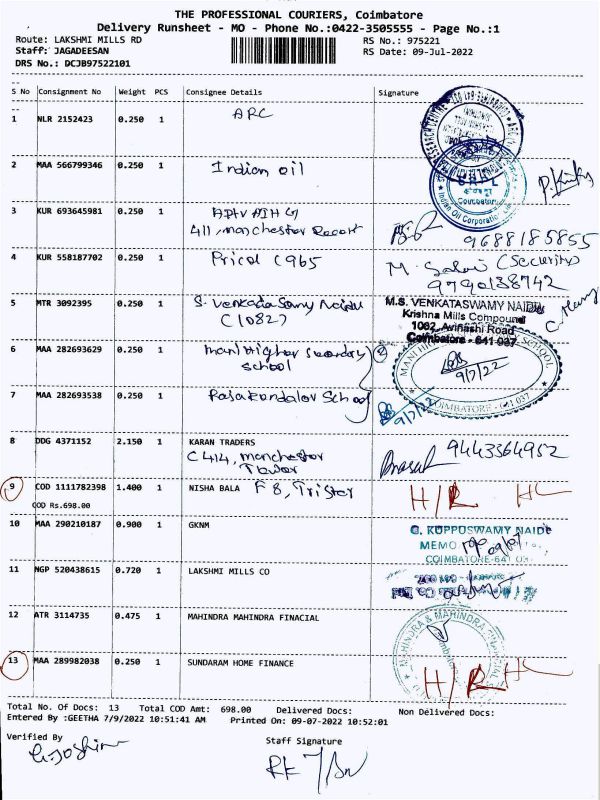 THE PROFESSIONAL COURIERS, Coimbatore
Delivery Runsheet - MO - Phone No.:0422-3505555 - Page No.:1
Route: LAKSHMI MILLS RD
RS No.: 975221
Staff: JAGADEESAN
RS Date: 09-Jul-2022
DRS No.: DCJB97522101
S No Consignment No Weight PCS Consignee Details Signature
1 NLR 2152423 0.250 1 ARC
2 MAA 566799346 0.250 1 Indian oil
Indian Oil Corporation
3 KUR 693645981 0.250 1
411, Manchester Resort
9688185855
4 KUR 558187702 0.250 1 Pricol C965
(Security)
9790138742
5 MTR 3092395 0.250 1 S. Venkada Samy Naidu
(1082)
M.S. VENKATASWAMY NAIDU
Krishna Mills Compound
1082, Avinashi Road
Coimbatore - 641 037
6 MAA 282693629 0.250 1 Mani Higher Secondary
School
9/7/22
COIMBATORE - 641 037
7 MAA 282693538 0.250 1 School
9/7/22
8 DDG 4371152 2.150 1 KARAN TRADERS
C 414, Manchester
Tower
9443364952
9 COD 1111782398 1.400 1 NISHA BALA F 8, Tristar
COD Rs.698.00
H/R HC
10 MAA 290210187 0.900 1 GKNM
G. KUPPUSWAMY NAIDU
MEMO
COIMBATORE-641
11 NGP 520438615 0.720 1 LAKSHMI MILLS CO
12 ATR 3114735 0.475 1 MAHINDRA MAHINDRA FINACIAL
MAHINDRA & MAHINDRA
13 MAA 289982038 0.250 1 SUNDARAM HOME FINANCE
H/R HC
Total No. Of Docs: 13 Total COD Amt: 698.00 Delivered Docs: Non Delivered Docs:
Entered By :GEETHA 7/9/2022 10:51:41 AM Printed On: 09-07-2022 10:52:01
Verified By
Staff Signature